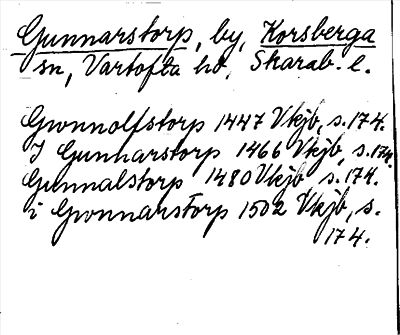 Gunnarstorp, by, Korsberga
sn, Vartofta hd, Skarab. l.
Gwnnolfstorp 1447 Vkjb, s. 174.
I Gunnarstorp 1466 Vkjb, s. 174.
Gunnalstorp 1480 Vkjb s. 174.
i Gwnnarstorp 1502 Vkjb, s.
174.